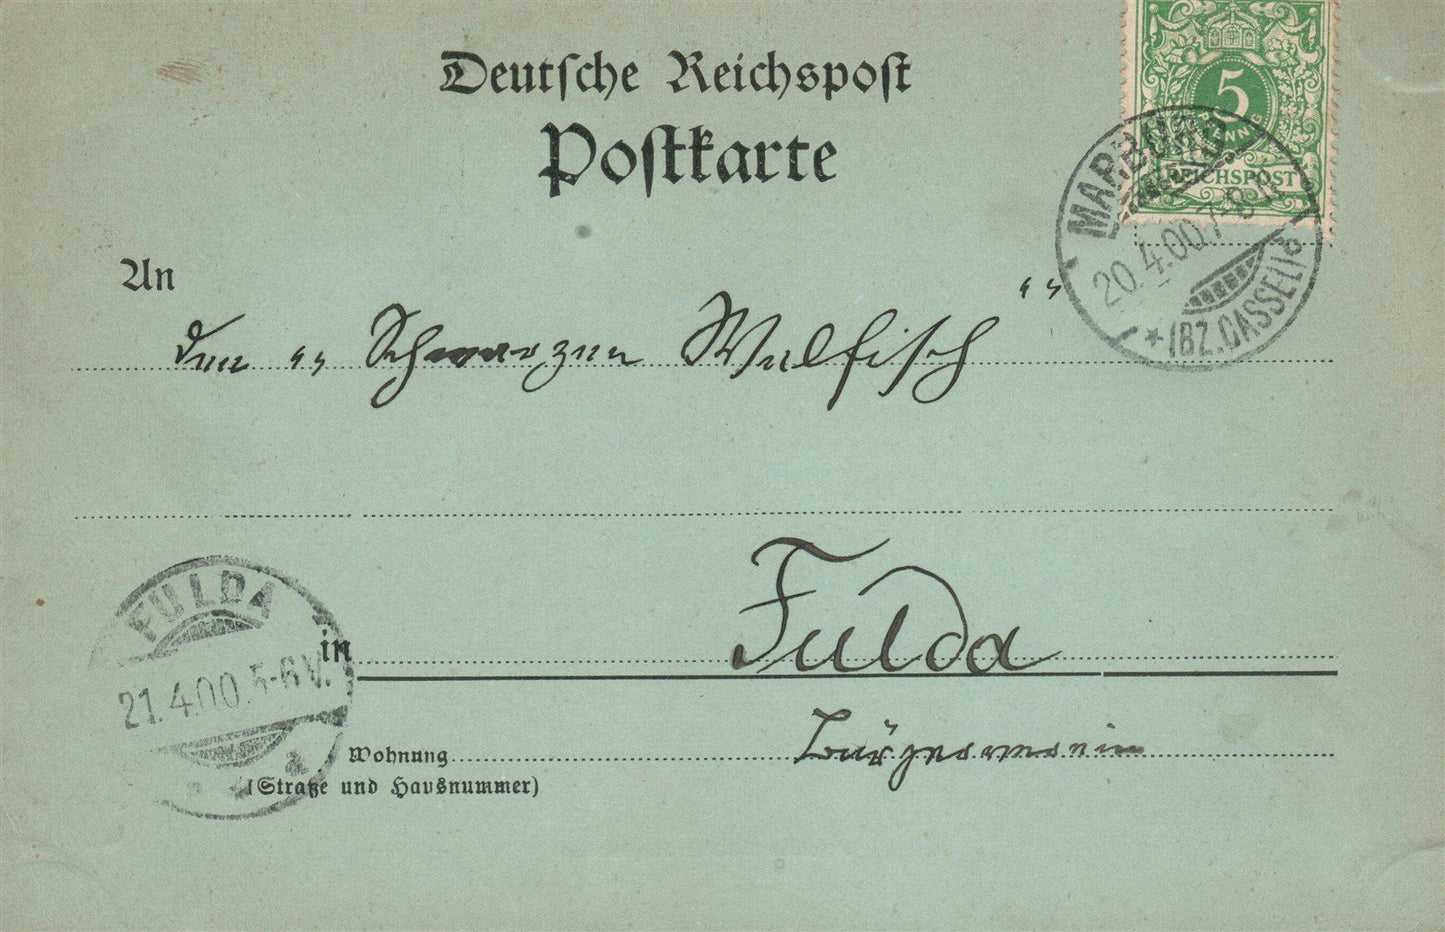 Deutsche Reichspost
Postkarte
5
PFENNIG
REICHSPOST
MARBURG
20.4.00.7-8N
* (BZ. CASSEL) b
An
den „ Schwarzen Walfisch “
FULDA
21.4.00.5-6V.
a
in Fulda
Wohnung Bürgerverein
(Straße und Hausnummer)